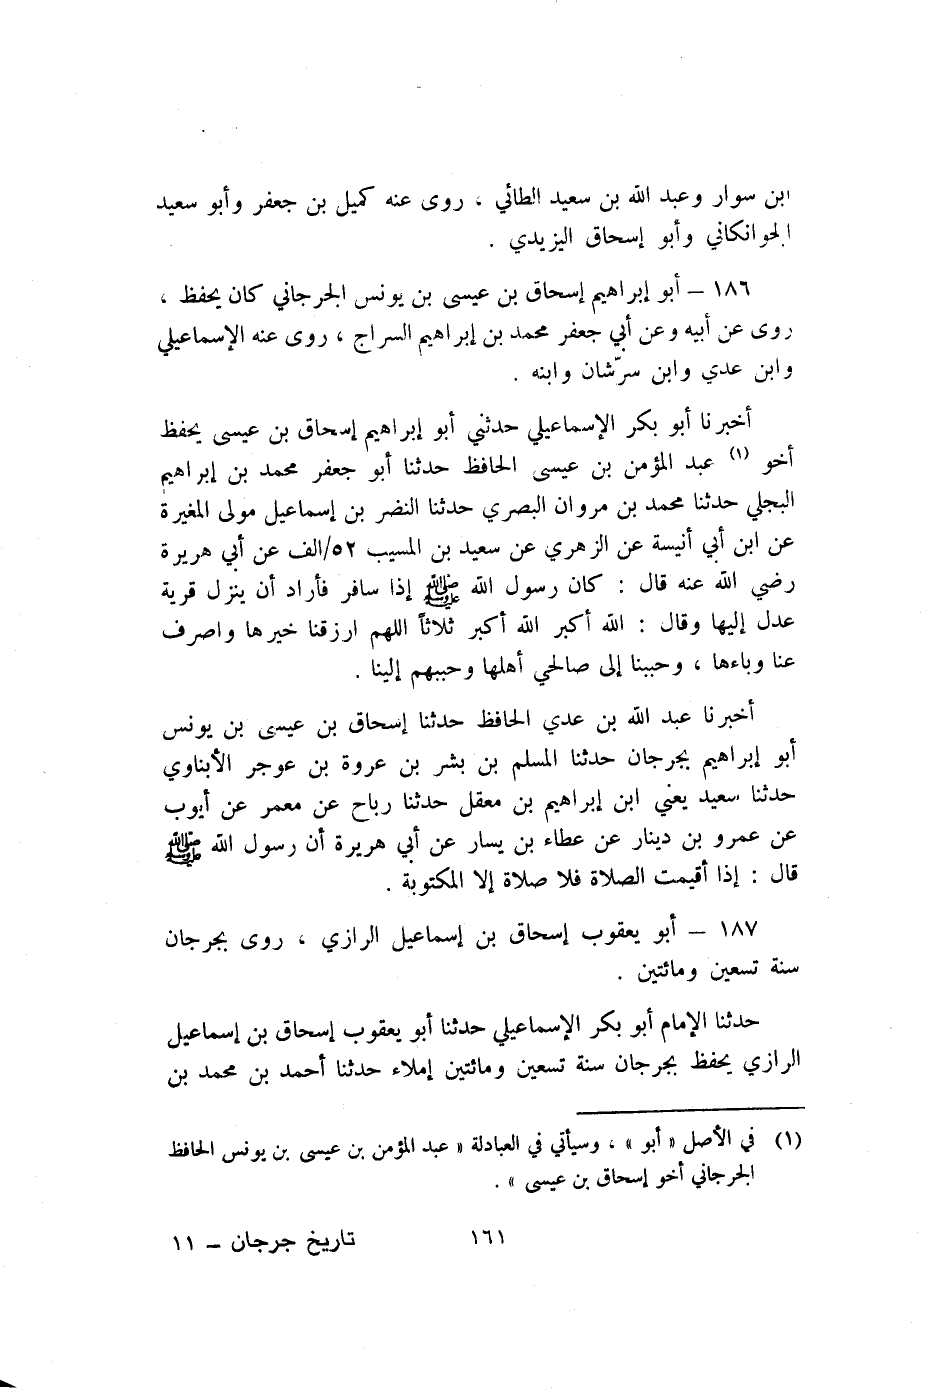 ابن سوار وعبد الله بن سعيد الطائي ، روى عنه كميل بن جعفر وأبو سعيد
الجوانكاني وأبو إسحاق اليزيدي .
١٨٦ – أبو إبراهيم إسحاق بن عيسى بن يونس الجرجاني كان يحفظ ،
روى عن أبيه وعن أبي جعفر محمد بن إبراهيم السراج ، روى عنه الإسماعيلي
وابن عدي وابن سرّشان وابنه .
أخبرنا أبو بكر الإسماعيلي حدثني أبو إبراهيم إسحاق بن عيسى يحفظ
أخو (١) عبد المؤمن بن عيسى الحافظ حدثنا أبو جعفر محمد بن إبراهيم
البجلي حدثنا محمد بن مروان البصري حدثنا النضر بن إسماعيل مولى المغيرة
عن ابن أبي أنيسة عن الزهري عن سعيد بن المسيب ٥٢/الف عن أبي هريرة
رضي الله عنه قال : كان رسول الله ﷺ إذا سافر فأراد أن ينزل قرية
عدل إليها وقال : الله أكبر الله أكبر ثلاثاً اللهم ارزقنا خيرها واصرف
عنا وباءها ، وحببنا إلى صالحي أهلها وحببهم إلينا .
أخبرنا عبد الله بن عدي الحافظ حدثنا إسحاق بن عيسى بن يونس
أبو إبراهيم بجرجان حدثنا المسلم بن بشر بن عروة بن عوجر الأبناوي
حدثنا سعيد يعني ابن إبراهيم بن معقل حدثنا رباح عن معمر عن أيوب
عن عمرو بن دينار عن عطاء بن يسار عن أبي هريرة أن رسول الله ﷺ
قال : إذا أقيمت الصلاة فلا صلاة إلا المكتوبة .
١٨٧ – أبو يعقوب إسحاق بن إسماعيل الرازي ، روى بجرجان
سنة تسعين ومائتين .
حدثنا الإمام أبو بكر الإسماعيلي حدثنا أبو يعقوب إسحاق بن إسماعيل
الرازي يحفظ بجرجان سنة تسعين ومائتين إملاء حدثنا أحمد بن محمد بن
(١) في الأصل « أبو » ، وسيأتي في العبادلة « عبد المؤمن بن عيسى بن يونس الحافظ
الجرجاني أخو إسحاق بن عيسى » .
١٦١
تاريخ جرجان – ١١